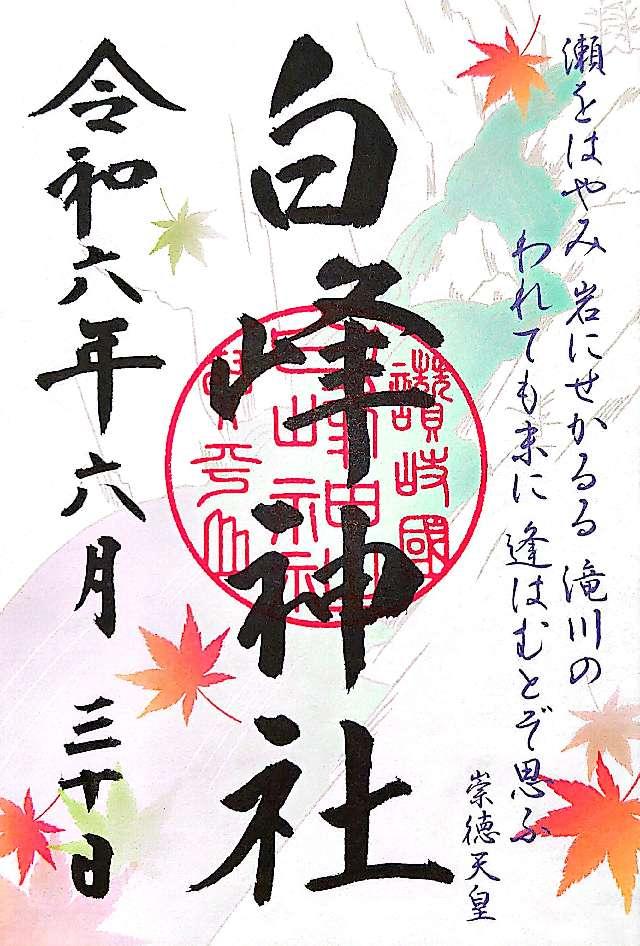 瀬をはやみ 岩にせかるる 滝川の
われても末に 逢はむとぞ思ふ
崇徳天皇
白峰神社
讃岐國
令和六年六月三十日